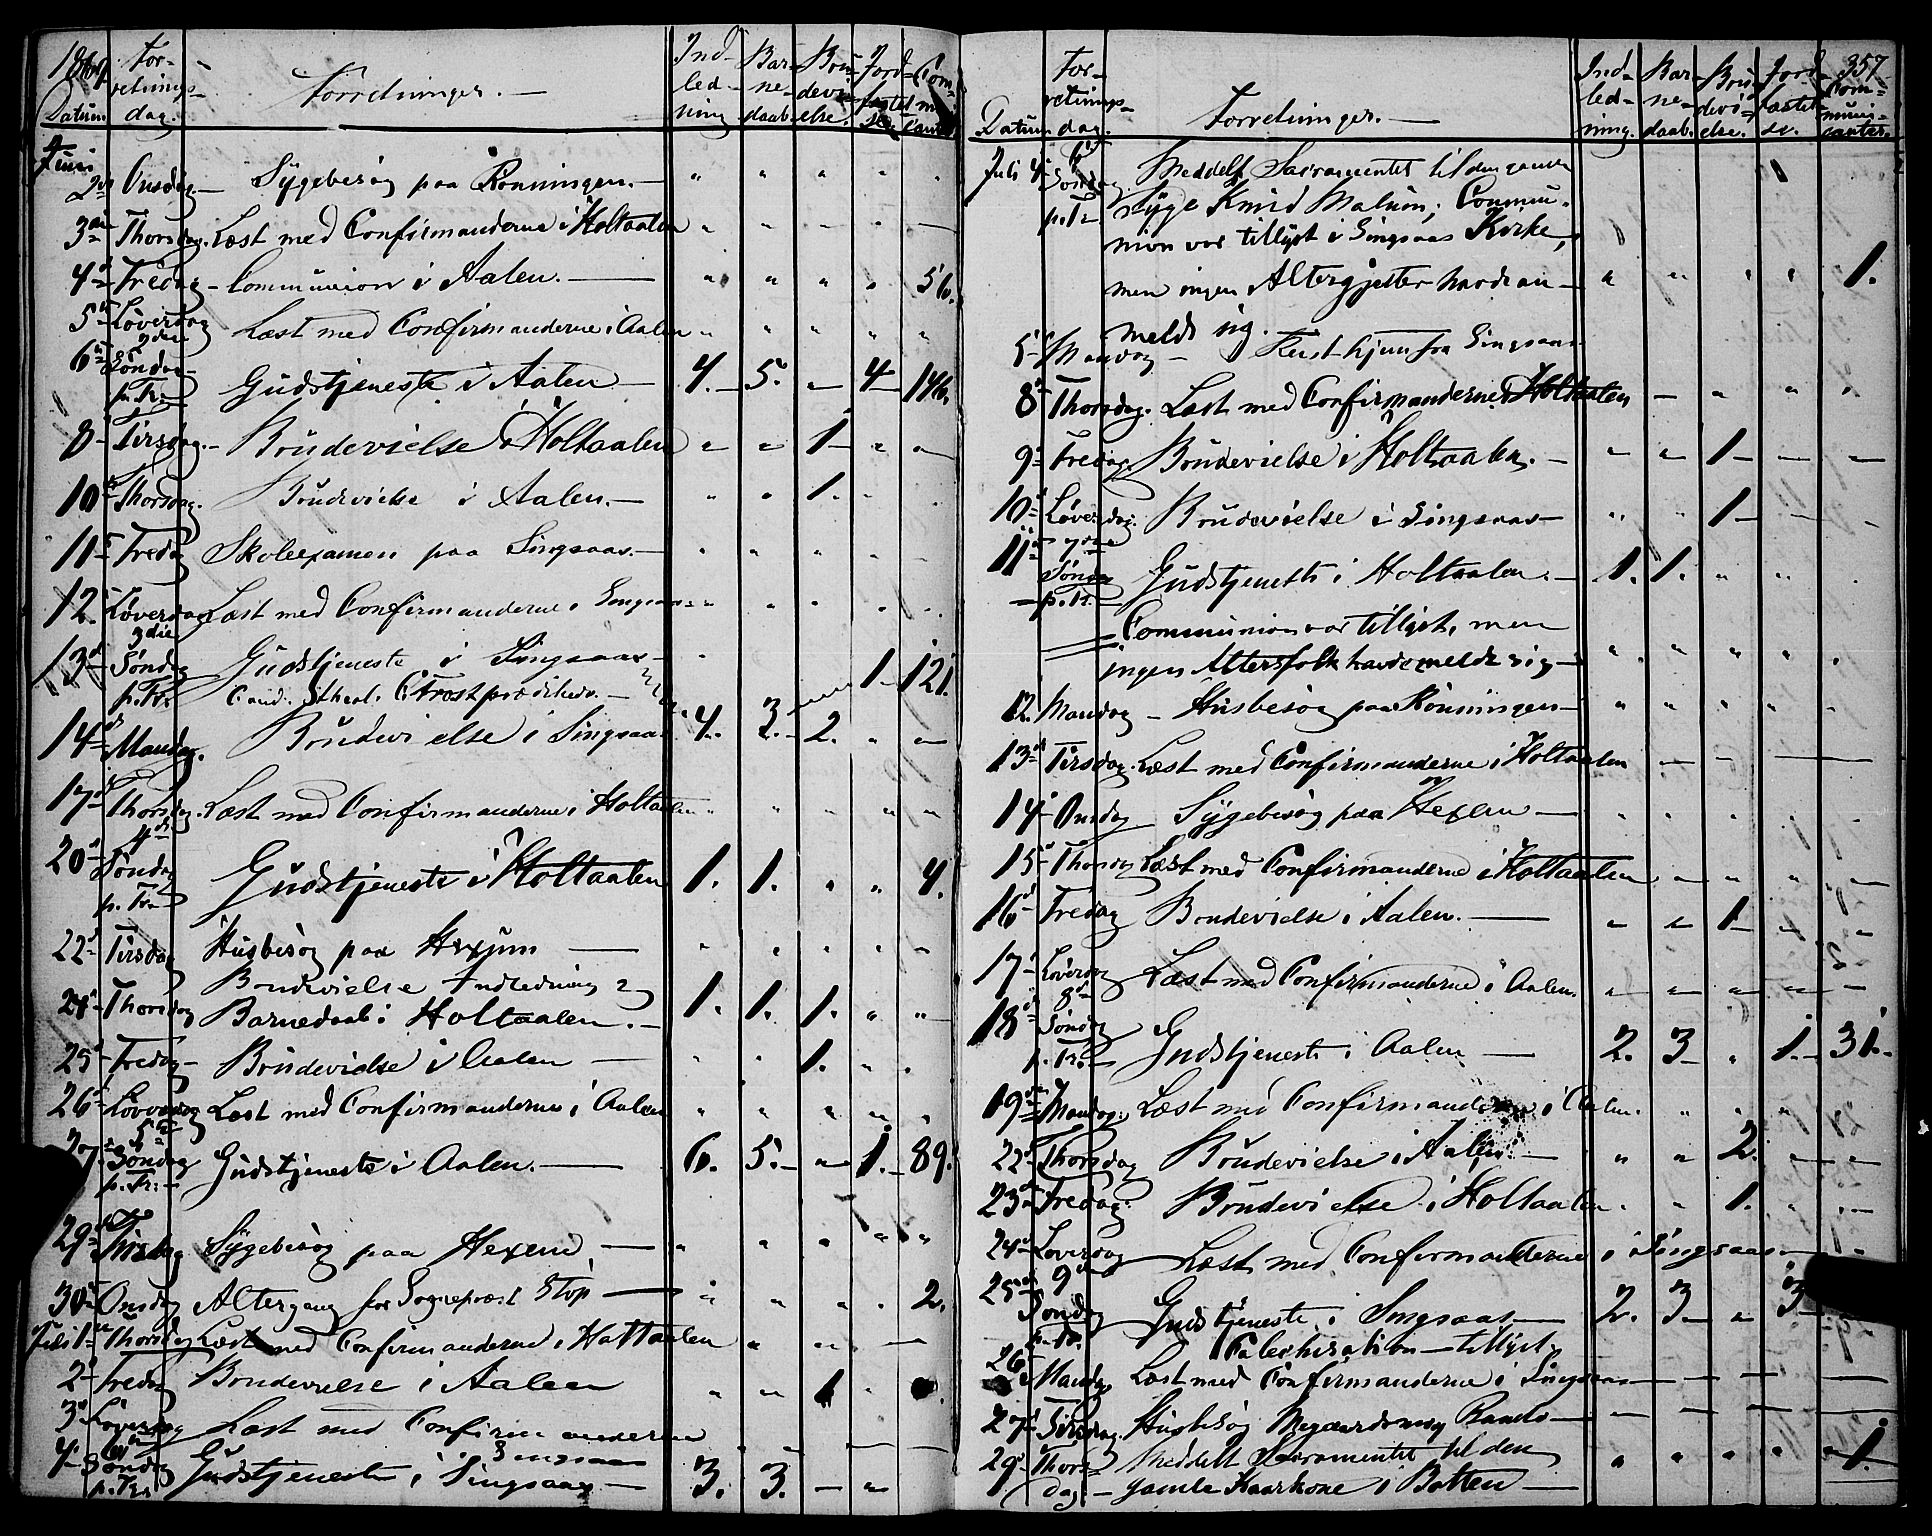 1869
Datum
Forretningsdag.
Forretninger.
Indledning
Barnedaab.
Brudevielse.
Jordfæstelse.
Communicanter
Juni
2d Onsdag. Sygebesøg paa Rønningen. " " " " "
3die Thorsdag. Læst med Confirmanderne i Holtaalen " " " " "
4d Fredag Communion i Aalen. " " " " 56.
5t Løverdag Læst med Confirmanderne i Aalen " " " " "
6t 2den Søndag p. Tr. Gudstjeneste i Aalen 4. 5. " 4 146.
8 Tirsdag. Brudevielse i Holtaalen " " 1 " "
10 Thorsdag. Brudevielse i Aalen. " " 1. " "
11 Fredag Skoleexamen paa Singsaas. " " " " "
12. Løverdag Læst med Confirmanderne i Singsaas " " " " "
13 3die Søndag p. Tr. Gudstjeneste i Singsaas 1 121.
Cand. theol. C. Trost prædikede.
14d Mandag. Brudevielse i Singsaas 4. 3. 2. " "
17d Thorsdag. Læst med Confirmanderne i Holtaalen " " " " "
20 4de Søndag p. Tr. Gudstjeneste i Holtaalen 1. 1. " " 4.
22 Tirsdag Husbesøg paa Hexum " " " " "
24 Thorsdag Brudevielse Indledning og
Barnedaab i Holtaalen. 1. 1. 1. " "
25 Fredag Brudevielse i Aalen " " 1. " "
26 Løverdag Læst med Confirmanderne i Aalen " " " " "
27 5te Søndag p. Tr. Gudstjeneste i Aalen. 6. 5. " 1. 89.
29 Tirsdag Sygebesøg paa Hexem " " " " "
30 Onsdag Altergang for Sognepræst Stop " " " " 2.
Juli 1 Thorsdag Læst med Confirmanderne i Holtaalen " " "
2 Fredag Brudevielse i Aalen " " 1 "
3 Løverdag Læst med Confirmanderne
Singsaas
4 6te Søndag p. Tr. Gudstjeneste i Singsaas 3. 3. "
357
Datum
Forretningsdag.
Forretninger.
Indledning.
Barnedaab.
Brudevielse.
Jordfæstelse.
Communicanter.
Juli 4 6te Søndag p. Tr. Meddelt Sacramentet til den gamle
Syge Knud Malum; Commu-
nion var tillyst i Singsaas Kirke,
men ingen Altergjester havde an- " " " " 1.
meldt sig.
5 Mandag Reist hjem fra Singsaas
8 Thorsdag. Læst med Confirmanderne i Holtaalen " " "
9 Fredag Brudevielse i Holtaalen. " " 1
10 Løverdag. Brudevielse i Singsaas " " 1
11 7de Søndag p. Tr. Gudstjeneste i Holtaalen. 1. 1. " " "
Communion var tillyst, men
ingen Altersfolk havde meldt sig " " " " "
12. Mandag Husbesøg paa Rønningen " " " " "
13 Tirsdag. Læst med Confirmanderne i Holtaalen
14 Onsdag Sygebesøg paa Hexem " " " " "
15 Thorsdag Læst med Confirmanderne i Holtaalen " " " "
16 Fredag Brudevielse i Aalen. " " 1 " "
17 Løverdag Læst med Confirmanderne i Aalen. " " " " "
18 8de Søndag p. Tr. Gudstjeneste i Aalen 2. 3 " 1. 31.
19 Mandag. Læst med Confirmanderne i Aalen. " " "
22 Thorsdag Brudevielse i Aalen " " 2. " "
23 Fredag. Brudevielse i Holtaalen " " 1. " "
24 Løverdag Læst med Confirmanderne i Singsaas
25 9de Søndag p. Tr. Gudstjeneste i Singsaas 2. 3 " 3
Catechisation tillyst.
26 Mandag Læst med Confirmanderne i Singsaas
27 Tirsdag. Husbesøg
29 Thorsdag. Meddelt Sacramentet til den " " " " 1.
gamle Kaarkone i Botten